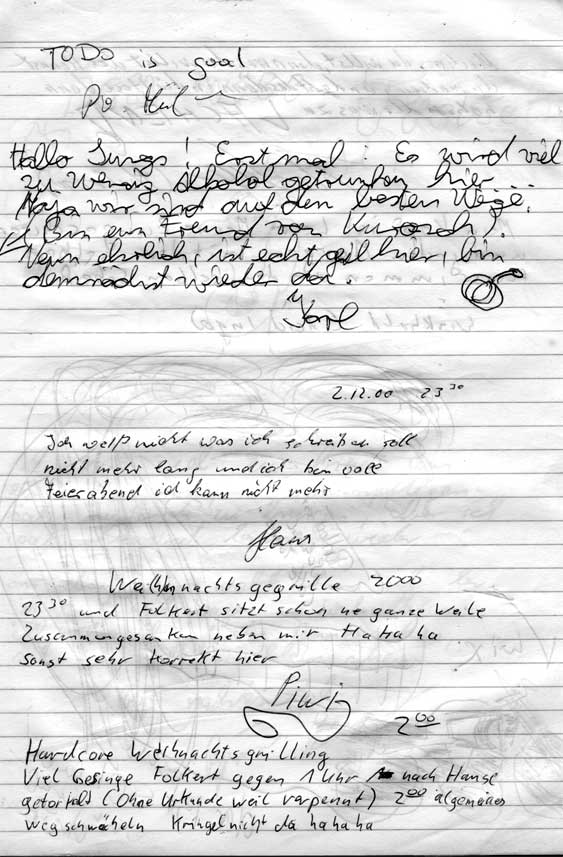 TODO is good
Hallo Jungs! Erstmal: Es wird viel
zu wenig Alkohol getrunken hier...
Naja wir sind auf dem besten Wege.
(Bin ein Freund von
Nein ehrlich, ist echt geil hier, bin
demnächst wieder da.
2.12.00 23³⁰
Ich weiß nicht was ich schreiben soll
nicht mehr lang und ich bin voll
Feierabend ich kann nicht mehr
Hans
Weihnachtsgegrille 2000
23³⁰ und Folkert sitzt schon ne ganze Weile
Zusammengesunken neben mir Ha Ha ha
sonst sehr korrekt hier
Piwi
2⁰⁰
Hardcore Weihnachtsgrilling
Viel Gesinge Folkert gegen 1 Uhr nach Hause
(Ohne Urkunde weil verpennt) 2⁰⁰ algemeines
wegschwächeln Kringel nicht da hahaha